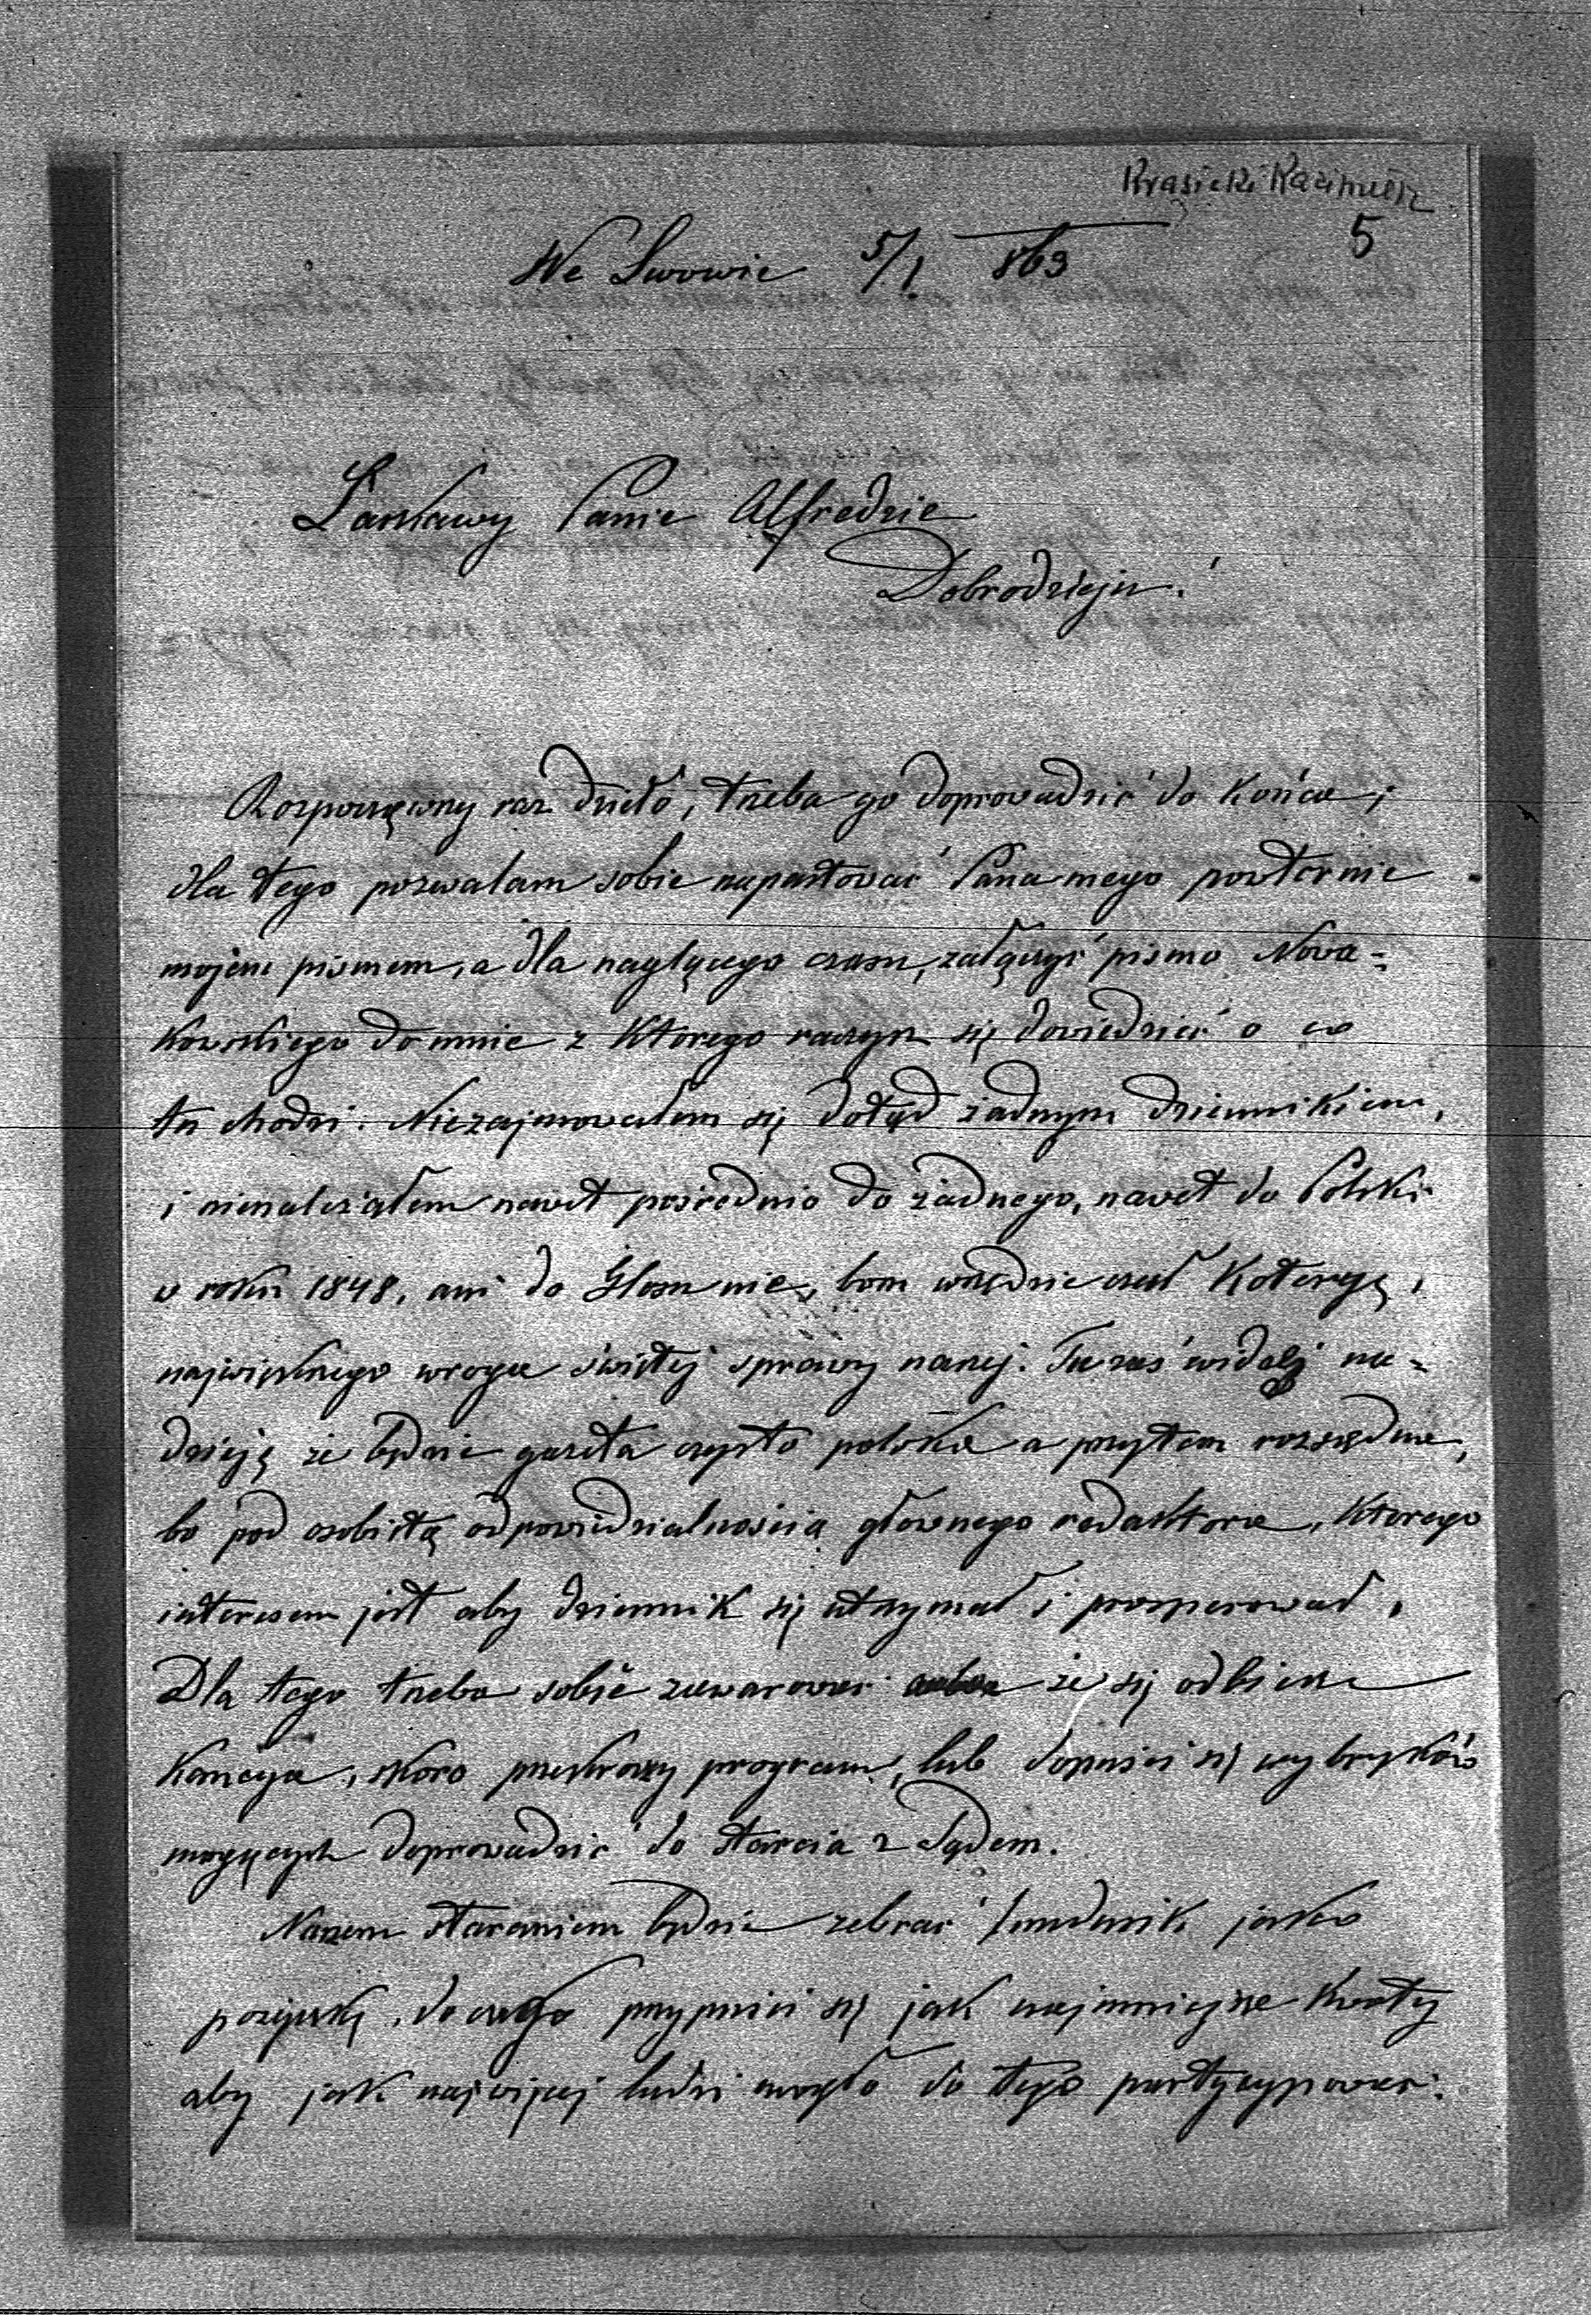 Krasicki Kazimierz
5
We Lwowie 5/1. 863
Łaskawy Panie Alfredzie
Dobrodzieju!
Rozpocząwszy raz dzieło, trzeba go doprowadzić do końca;
dla tego pozwalam sobie napastować Pana mego powtornie
mojem pismem, a dla naglącego czasu, załączyć pismo Nowa=
kowskiego do mnie z ktorego raczysz się dowiedzieć o co
tu chodzi. Niezajmowałem się dotąd żadnym dziennikiem,
i nienależałem nawet pośrednio do żadnego, nawet do Polski
w roku 1848, ani do Głosu nie, bom wszędzie czuł Koteryę,
największego wroga świętej sprawy naszej. Tu zaś widzę na=
dzieję że będzie gazeta czysto polska a przytem rozsądna,
bo pod osobistą odpowiedzialnością głownego redaktora, ktorego
interesem jest aby dziennik się utrzymał i prosperował.
Dla tego trzeba sobie zawarować że się odbierze
kaucya, skoro przekroczy program, lub dopuści się wybryków
mogących doprowadzić do starcia z Sądem.
Naszem staraniem będzie zebrać fundusik jako
pożyczkę, do czego przypuści się jak najmniejsze kwoty
aby jak najwięcej ludzi mogło do tego partycypować.